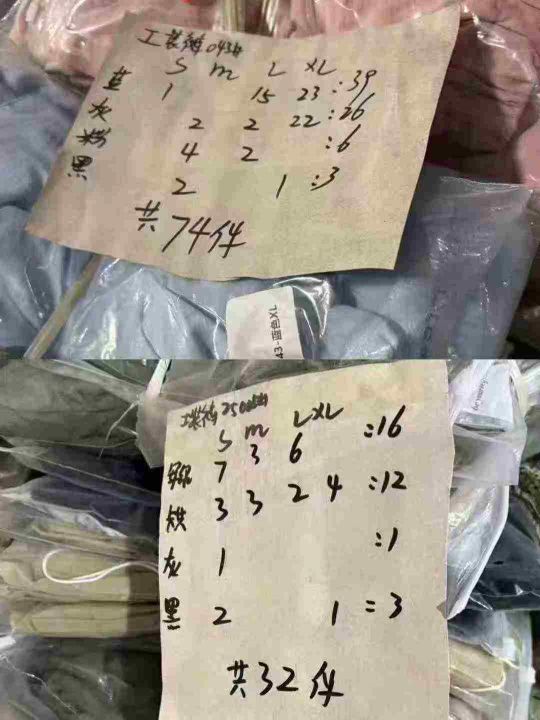 工装裤043#
S M L XL
蓝 1 15 23 :39
灰 2 2 22 :26
粉 4 2 :6
黑 2 1 :3
共74件
43-蓝色XL
S M L XL
7 3 6 :16
3 3 2 4 :12
灰 1 :1
黑 2 1 = 3
共32件